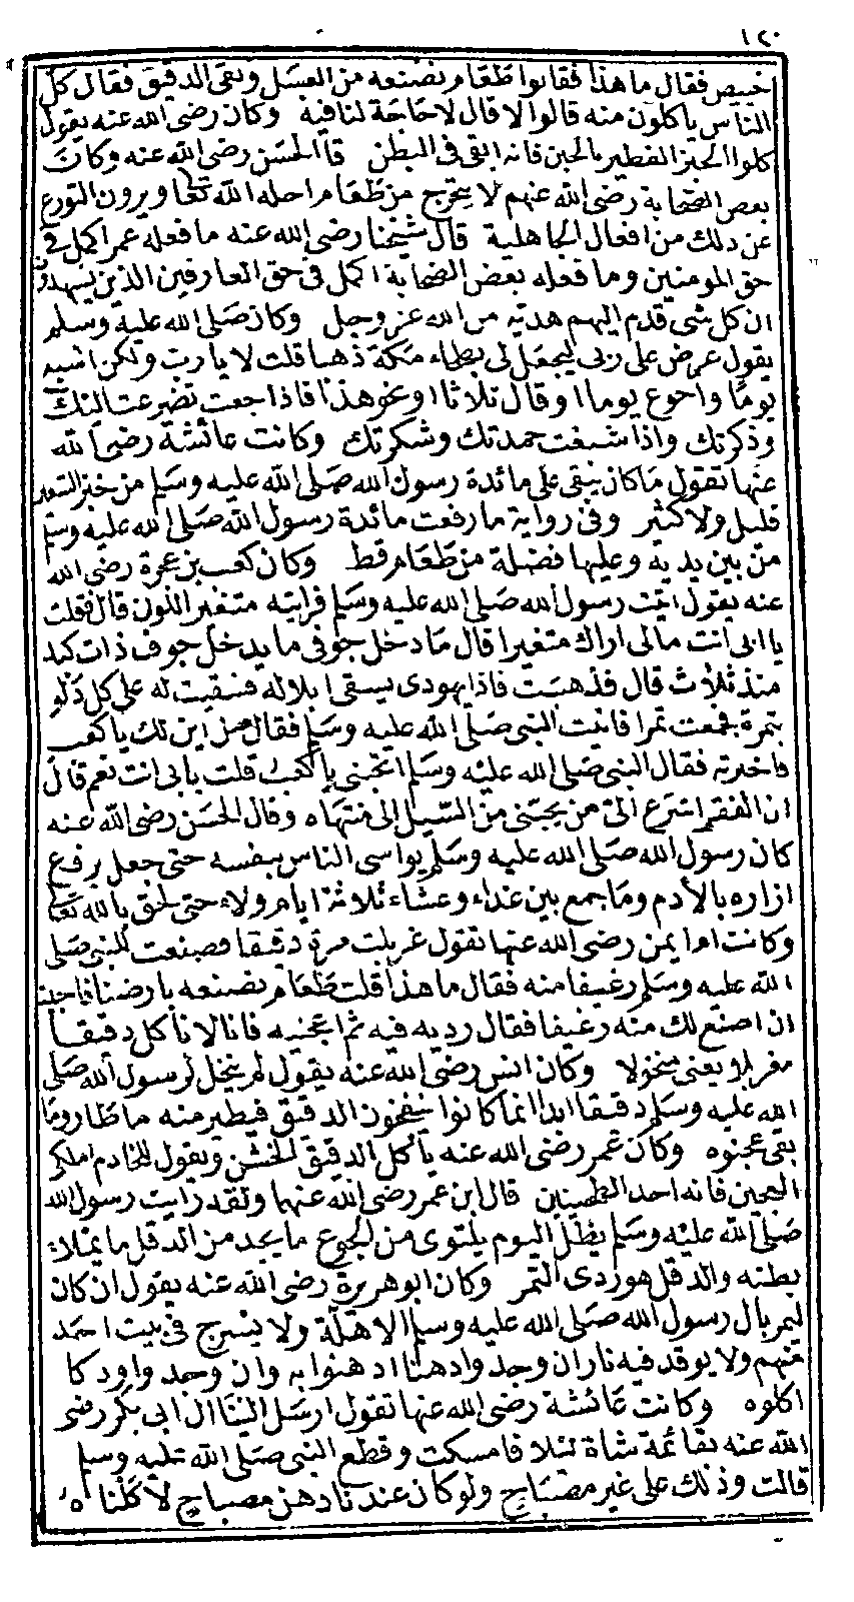 ١٢٠
خبيص فقال ما هذا فقالوا طعام نصنعه من العسل ونقى الدقيق فقال كل
الناس ياكلون منه قالوا لا قال لا حاجة لنا فيه وكان رضى الله عنه يقول
كلوا الخبز الفطير بالجبن فانه ابقى فى البطن قال الحسن رضى الله عنه وكان
بعض الصحابة رضى الله عنهم لا يتحرج من طعام احله الله تعا ويرون التورع
عن ذلك من افعال الجاهلية قال شيخنا رضى الله عنه ما فعله عمر اكمل فى
حق المومنين وما فعله بعض الصحابة اكمل فى حق العارفين الذين يشهدون
ان كل شى قدم اليهم هدية من الله عز وجل وكان صلى الله عليه وسلم
يقول عرض على ربى ليجعل لى بطحاء مكة ذهبا قلت لا يا رب ولكن اشبع
يوما واجوع يوما او قال ثلاثا او نحو هذا فاذا جعت تضرعت اليك
وذكرتك واذا شبعت حمدتك وشكرتك وكانت عائشة رضى الله
عنها تقول ما كان يبقى على مائدة رسول الله صلى الله عليه وسلم من خبز الشعير
قليل ولا كثير وفى رواية ما رفعت مائدة رسول الله صلى الله عليه وسلم
من بين يديه وعليها فضلة من طعام قط وكان كعب بن عجرة رضى الله
عنه يقول اتيت رسول الله صلى الله عليه وسلم فرايته متغير اللون قال فقلت
بابى انت مالى اراك متغيرا قال ما دخل جوفى ما يدخل جوف ذات كبد
منذ ثلاث قال فذهبت فاذا يهودى يسقى ابلا له فسقيت له على كل دلو
بتمرة فجمعت تمرا فاتيت النبى صلى الله عليه وسلم فقال من اين لك يا كعب
فاخبرته فقال النبى صلى الله عليه وسلم اتحبنى يا كعب قلت بابى انت نعم قال
ان الفقر اسرع الى من يحبنى من السيل الى منتهاه وقال الحسن رضى الله عنه
كان رسول الله صلى الله عليه وسلم يواسى الناس بنفسه حتى جعل يرقع
ازاره بالادم وما جمع بين غداء وعشاء ثلاثة ايام ولاء حتى لحق بالله تعا
وكانت ام ايمن رضى الله عنها تقول غربلت مرة دقيقا فصنعت للنبى صلى
الله عليه وسلم رغيفا منه فقال ما هذا قلت طعام نصنعه بارضنا فاحببت
ان اصنع لك منه رغيفا فقال رديه فيه ثم اعجنيه فانا لا ناكل دقيقا
مغربلا يعنى منخولا وكان انس رضى الله عنه يقول لم ينخل لرسول الله صلى
الله عليه وسلم دقيقا ابدا انما كانوا ينفخون الدقيق فيطير منه ما طار وما
بقى عجنوه وكان عمر رضى الله عنه ياكل الدقيق الخشن ويقول للخادم املكى
العجين فانه احد الطحينين قال ابن عمر رضى الله عنهما ولقد رايت رسول الله
صلى الله عليه وسلم يظل اليوم يلتوى من الجوع ما يجد من الدقل ما يملاء
بطنه والدقل هو ردى التمر وكان ابو هريرة رضى الله عنه يقول ان كان
ليمر بال رسول الله صلى الله عليه وسلم الاهلة ولا يسرج فى بيت احد
منهم ولا يوقد فيه نار ان وجدوا دهنا ادهنوا به وان وجدوا ودكا
اكلوه وكانت عائشة رضى الله عنها تقول ارسل الينا ال ابى بكر رضى
الله عنه بقائمة شاة ليلا فامسكت وقطع النبى صلى الله عليه وسلم
قالت وذلك على غير مصباح ولو كان عندنا دهن مصباح لاكلناه